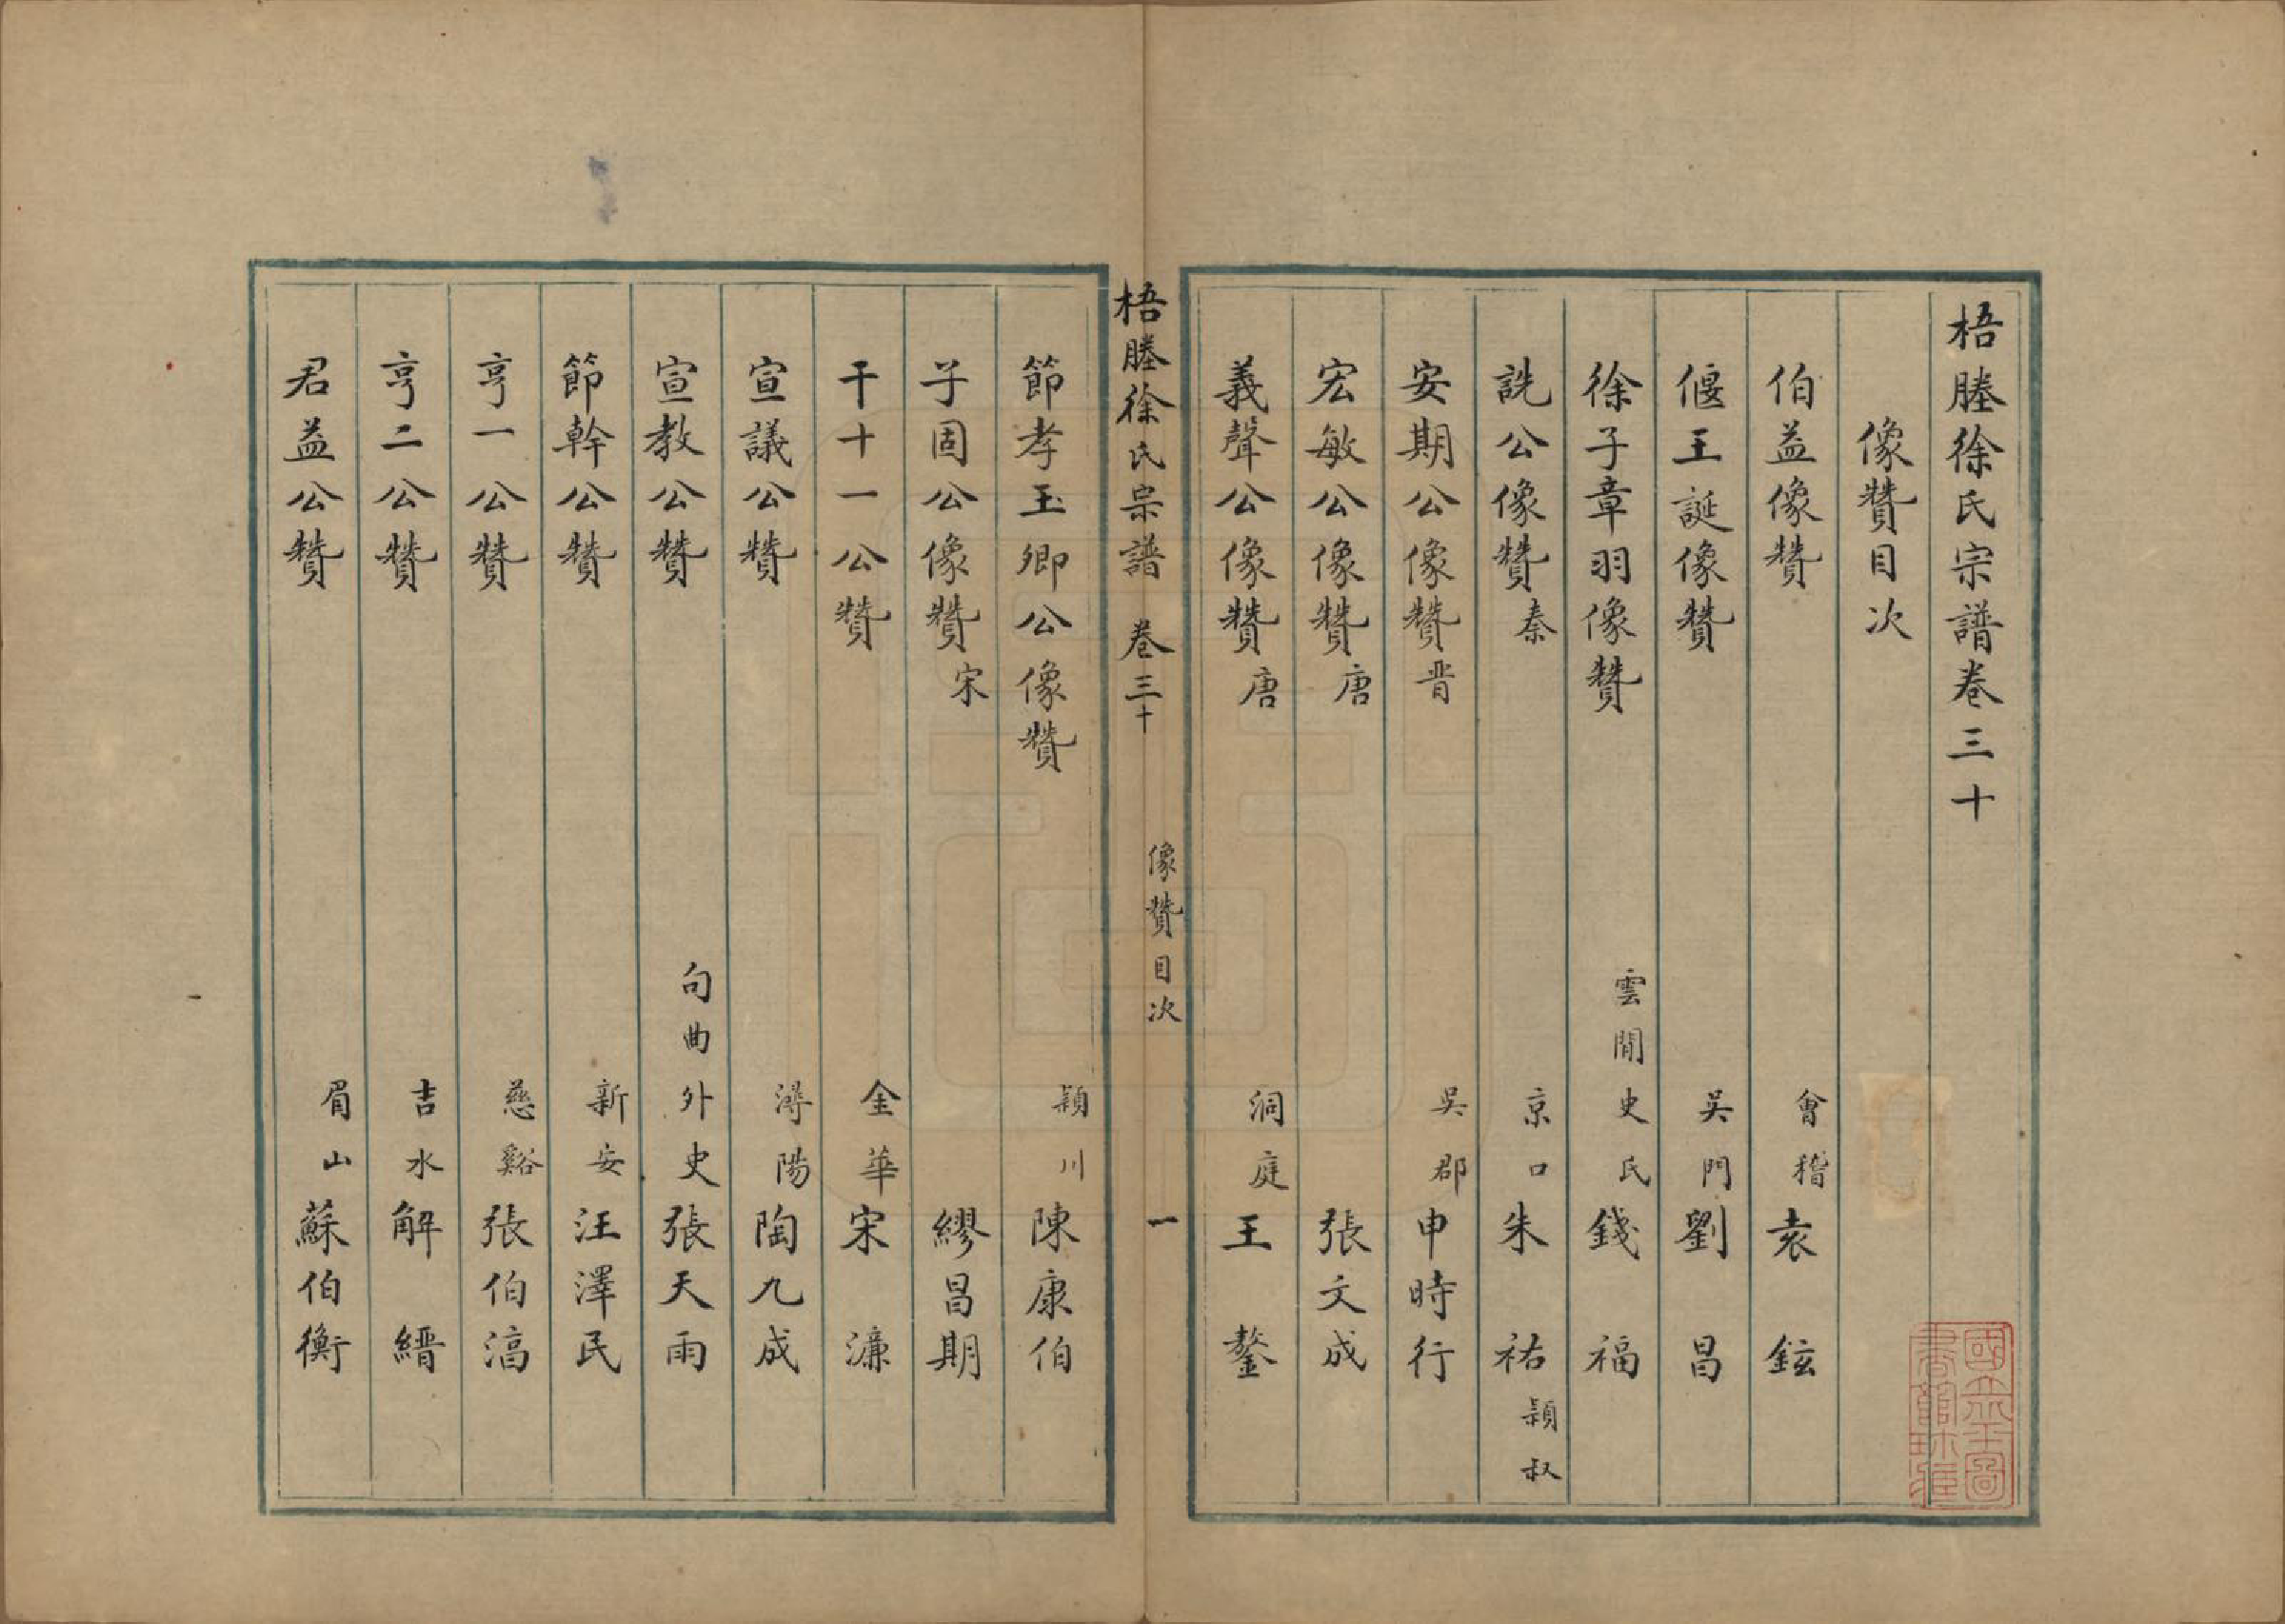 梧塍徐氏宗譜卷三十
像贊目次
伯益像贊 會稽袁鉉
偃王誕像贊 吳門劉昌
徐子章羽像贊 雲間史氏錢福
詵公像贊秦 京口朱祐頴叔
安期公像贊晋 吳郡申時行
宏敏公像贊唐 張文成
義聲公像贊唐 洞庭王鏊
梧塍徐氏宗譜 卷三十 像贊目次 一
節孝玉卿公像贊 頴川陳康伯
子固公像贊宋 繆昌期
千十一公贊 金華宋濂
宣議公贊 潯陽陶九成
宣教公贊 句曲外史張天雨
節幹公贊 新安汪澤民
亨一公贊 慈谿張伯滈
亨二公贊 吉水解縉
君益公贊 眉山蘇伯衡
國立北平圖書館珍藏